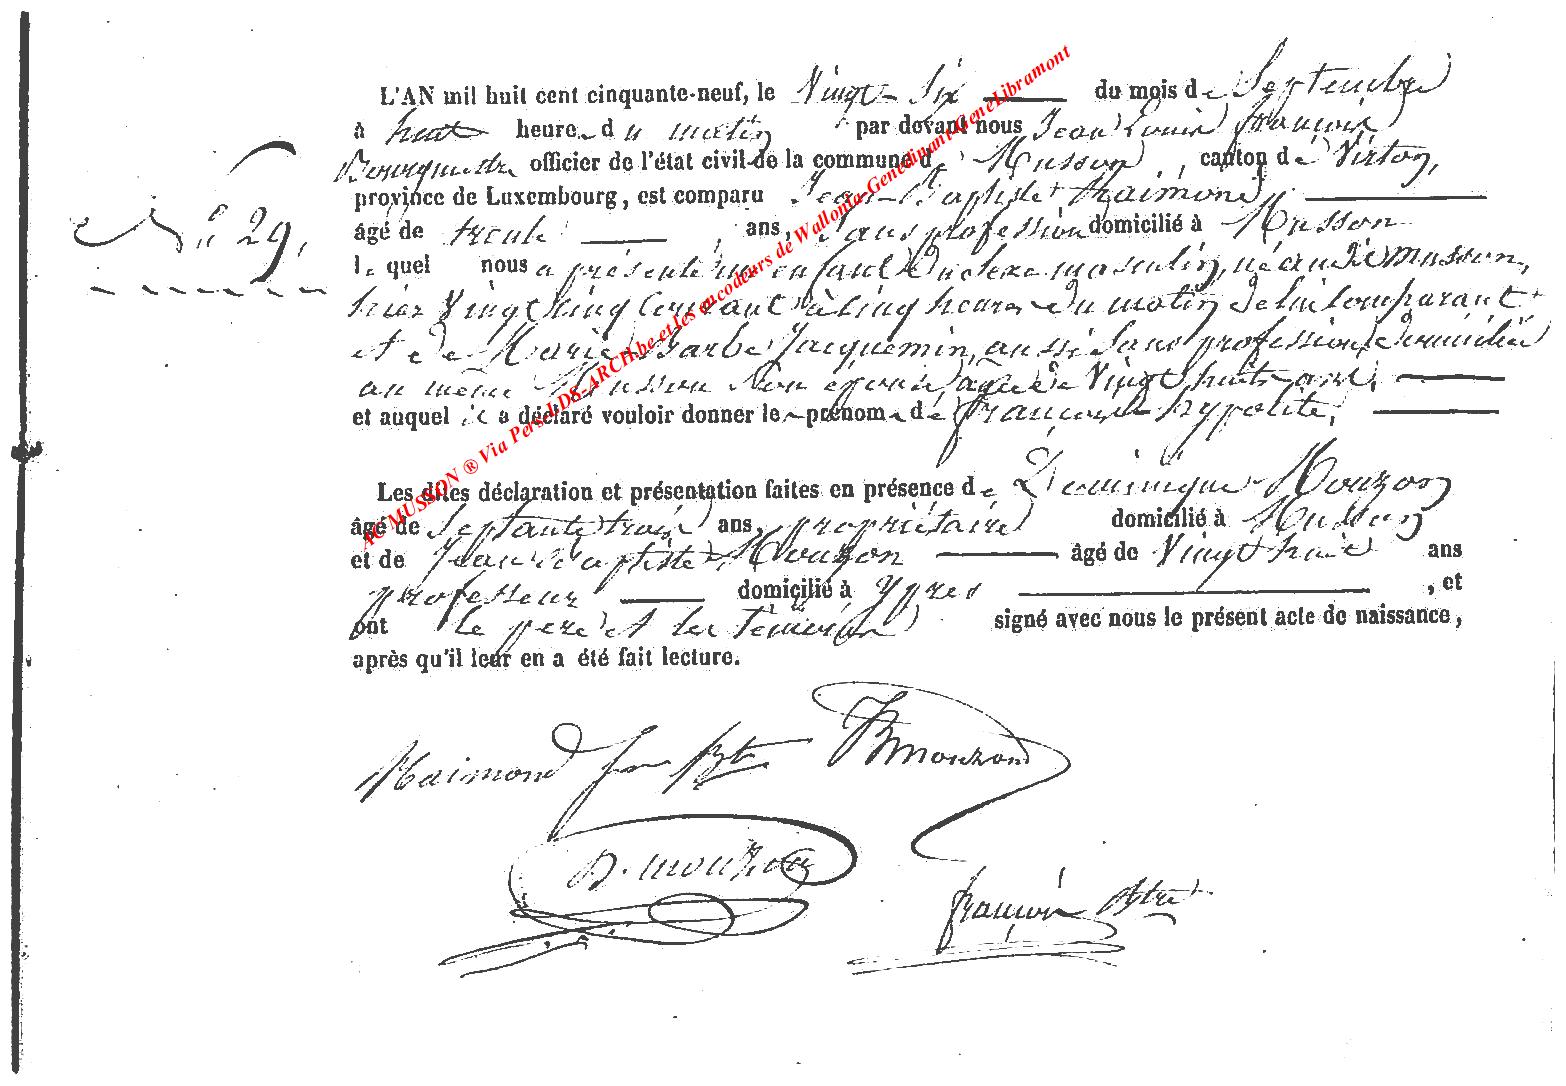 L'AN mil huit cent cinquante-neuf, le Vingt Six du mois de Septembre
à huit heure du matin par devant nous Jean Louis françois
Bourguemtre officier de l'état civil de la commune de Musson, canton de Virton,
province de Luxembourg, est comparu Jean-Baptiste Raimond
N° 29.
âgé de trente ans, Sans profession domicilié à Musson
le quel nous a présenté un enfant du sexe masculin, né au dit musson,
hier Vingt Cinq Courant à Cinq heures du matin de lui Comparant
et de Marie Barbe Jacquemin, aussi Sans profession domiciliée
au même Musson Son épouse, agée de Vingt huit ans,
et auquel il a déclaré vouloir donner le prénom de françois hypolite,
Les dites déclaration et présentation faites en présence de Dominique Mouzon
âgé de Septante trois ans, propriétaire domicilié à Musson
et de Jean Baptiste Mouzon âgé de Vingt huit ans
professeur domicilié à Ypres, et
ont le père et les témoins signé avec nous le présent acte de naissance,
après qu'il leur en a été fait lecture.
Raimond Jean Bte JBmouzon
D. mouzon
françois Btre
AC MUSSON ® Via Perso LDS ARCH.be et les encodeurs de Wallonia-Genedinant-GeneLibramont